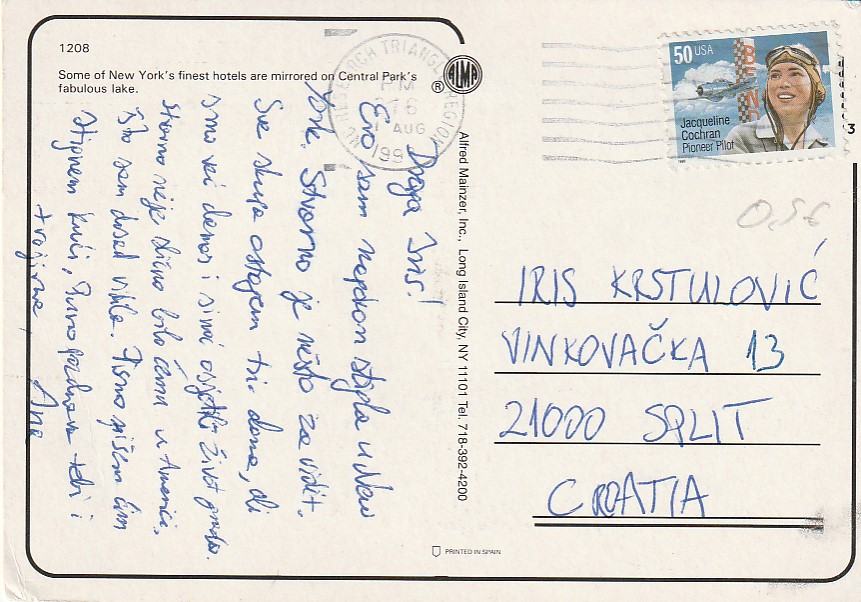 1208
Some of New York's finest hotels are mirrored on Central Park's
fabulous lake.
Draga Iris!
Evo sam napokon stigla u New
York. Stvarno je nešto za vidit.
Sve skupa ostajem tri dana, ali
smo već danas i sinoć osjetili život grada.
Stvarno nije slično bilo čemu u Americi,
što sam dosad vidila. Pismo pišem čim
stignem kući, Puno pozdrava tebi i
tvojima, Ana
ALMA
®
Alfred Mainzer, Inc., Long Island City, NY 11101 Tel. 718-392-4200
PRINTED IN SPAIN
RESEARCH TRIANGLE REGION
PM
AUG
50 USA
Jacqueline
Cochran
Pioneer Pilot
3
0,56
IRIS KRSTULOVIĆ
VINKOVAČKA 13
21000 SPLIT
CROATIA